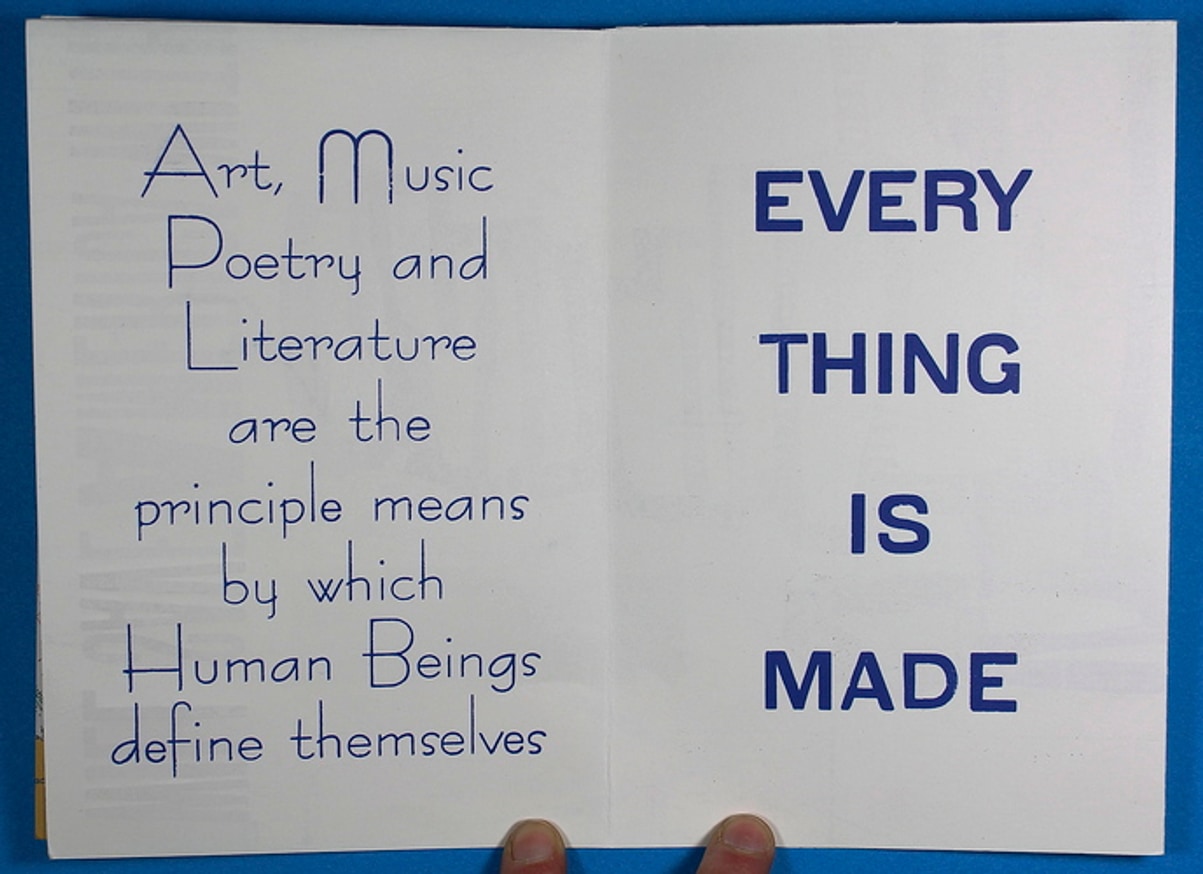 Art, Music
Poetry and
Literature
are the
principle means
by which
Human Beings
define themselves
EVERY
THING
IS
MADE